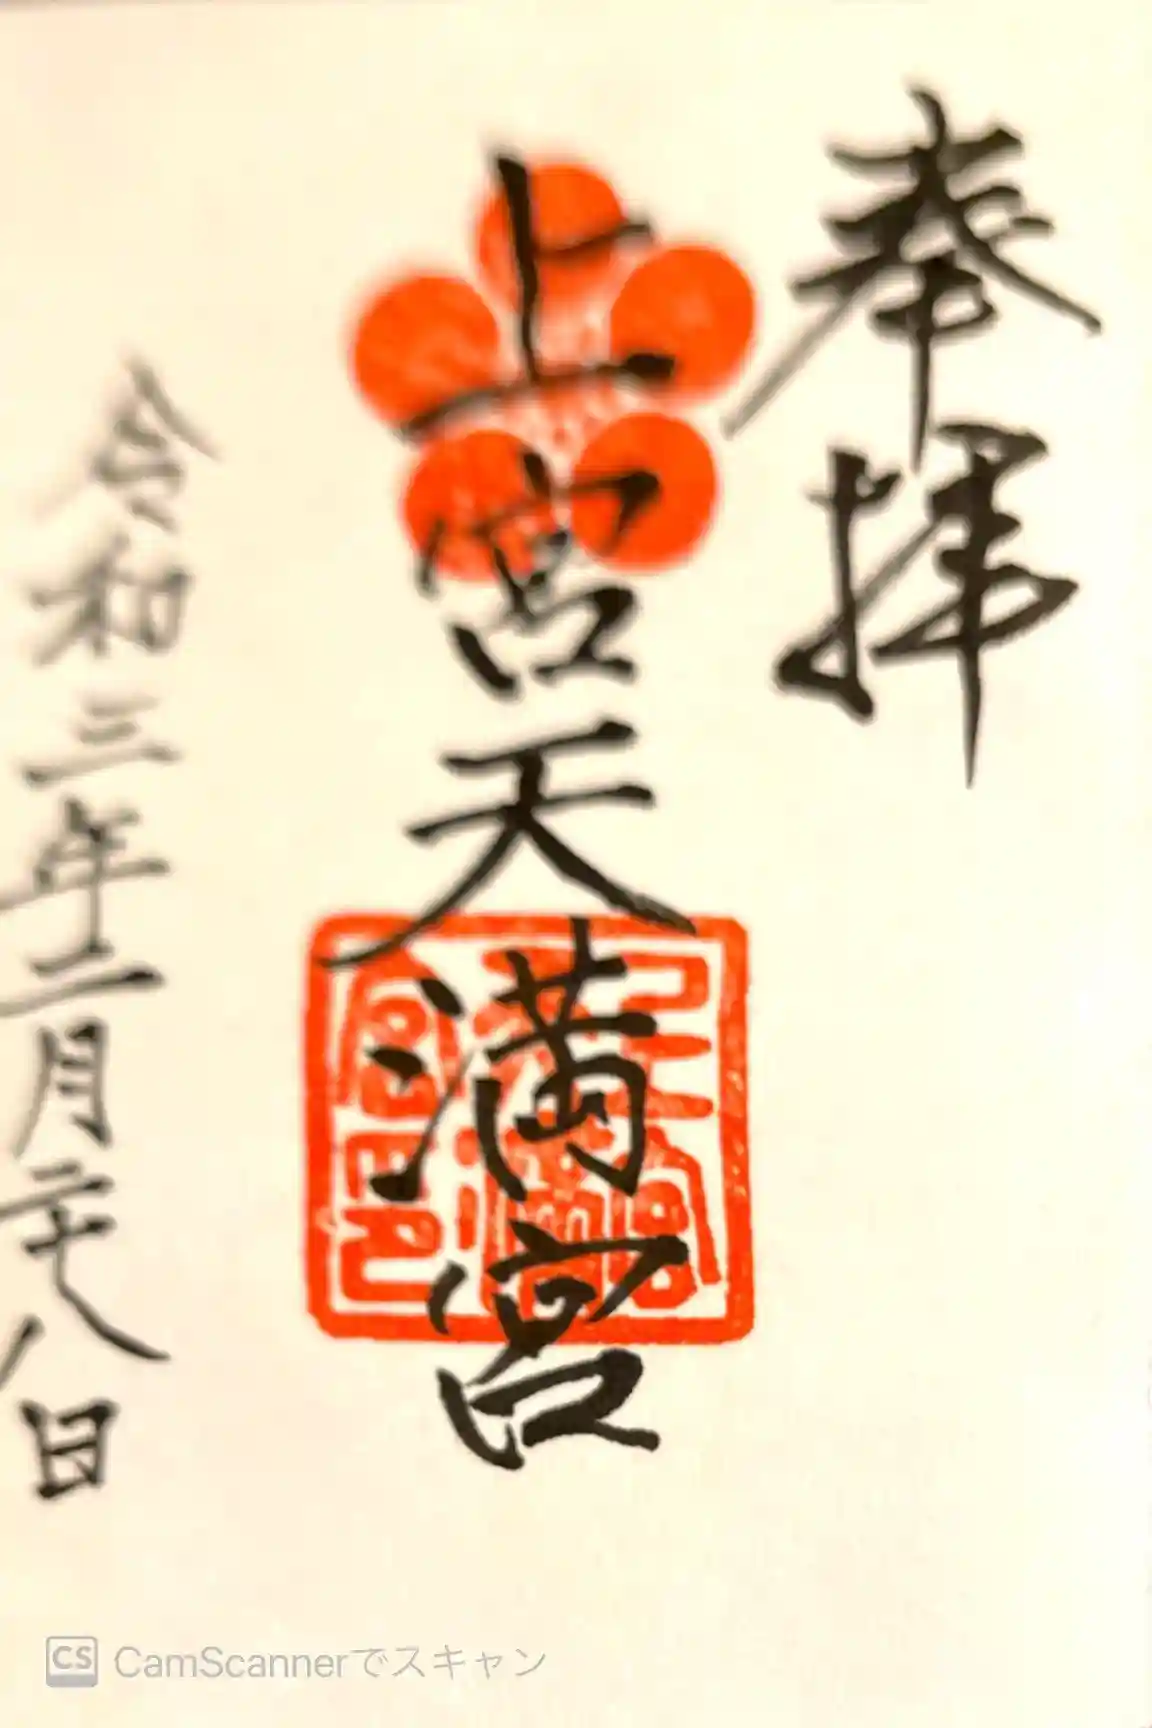 奉拝
上宮天満宮
令和三年二月二十八日
CamScannerでスキャン